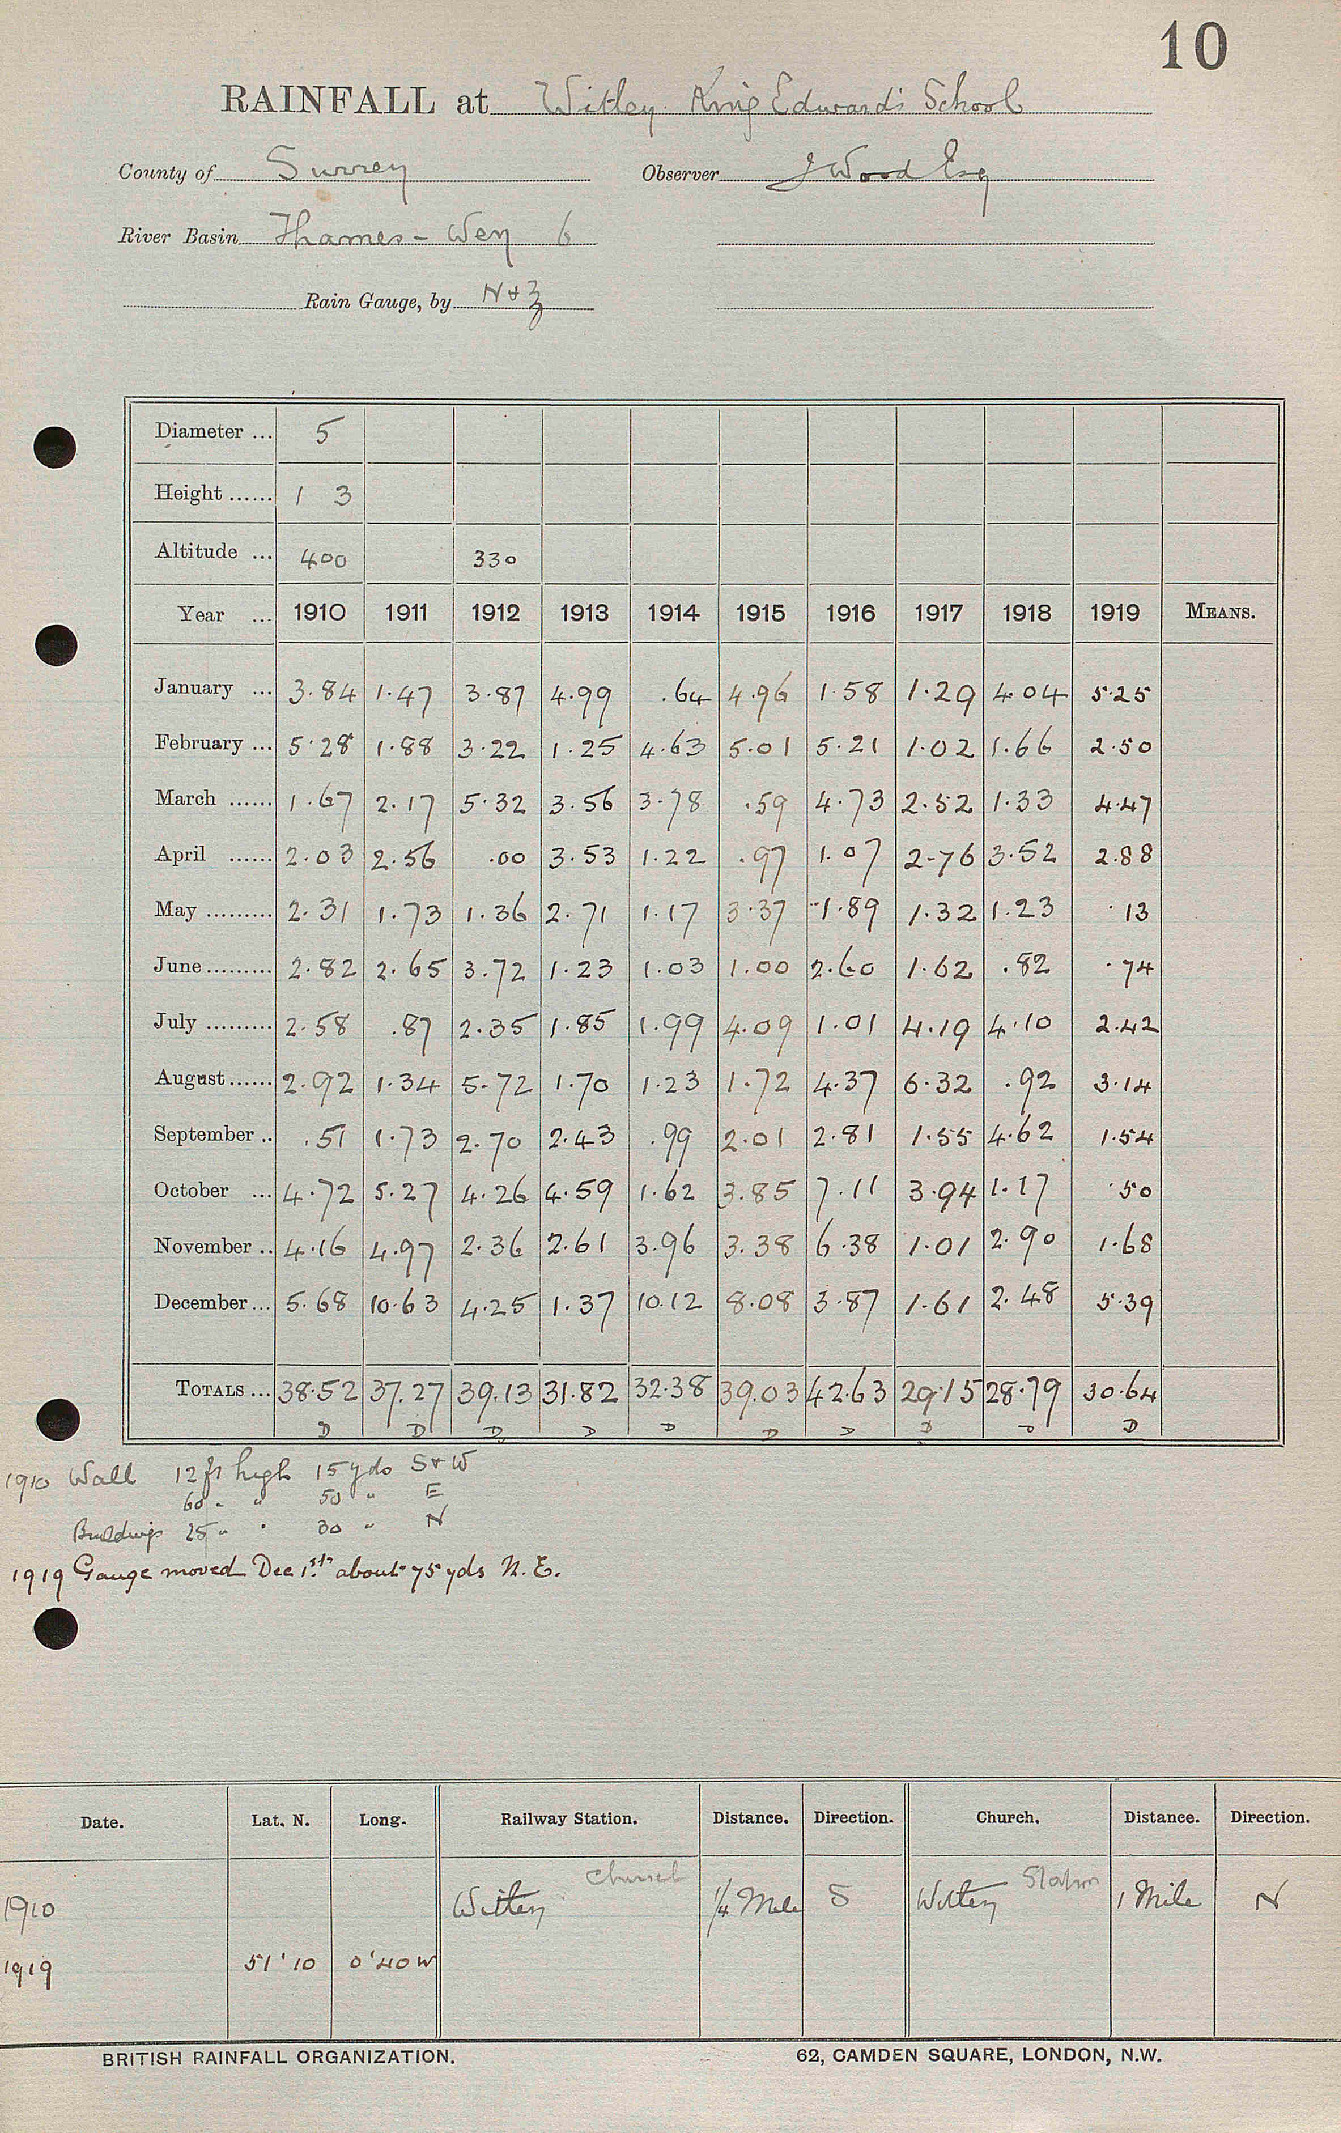 10
RAINFALL at Witley King Edward's School
County of Surrey Observer J Wood Esq
River Basin Thames - Wey 6
Rain Gauge, by N & Z
Diameter ... 5
Height ...... 1 3
Altitude ... 400 330
Year ... 1910 1911 1912 1913 1914 1915 1916 1917 1918 1919 MEANS.
January ... 3.84 1.47 3.87 4.99 .64 4.96 1.58 1.29 4.04 5.25
February ... 5.28 1.88 3.22 1.25 4.63 5.01 5.21 1.02 1.66 2.50
March ...... 1.67 2.17 5.32 3.56 3.78 .59 4.73 2.52 1.33 4.47
April ...... 2.03 2.56 .00 3.53 1.22 .97 1.07 2.76 3.52 2.88
May ......... 2.31 1.73 1.36 2.71 1.17 3.37 1.89 1.32 1.23 .13
June ......... 2.82 2.65 3.72 1.23 1.03 1.00 2.60 1.62 .82 .74
July ......... 2.58 .87 2.35 1.85 1.99 4.09 1.01 4.19 4.10 2.42
August ...... 2.92 1.34 5.72 1.70 1.23 1.72 4.37 6.32 .92 3.14
September .. .51 1.73 2.70 2.43 .99 2.01 2.81 1.55 4.62 1.54
October ... 4.72 5.27 4.26 4.59 1.62 3.85 7.11 3.94 1.17 .50
November .. 4.16 4.97 2.36 2.61 3.96 3.38 6.38 1.01 2.90 1.68
December ... 5.68 10.63 4.25 1.37 10.12 8.08 3.87 1.61 2.48 5.39
TOTALS ... 38.52 37.27 39.13 31.82 32.38 39.03 42.63 29.15 28.79 30.64
D D D D D D D D D D
1910 Wall 12 ft high 15 yds S & W
60 " " 50 " E
Buildings 25 " " 30 " N
1919 Gauge moved Dec 1st. about 75 yds N.E.
Date. Lat. N. Long. Railway Station. Distance. Direction. Church. Distance. Direction.
Church Station
1910 Witley 1/4 Mile S Witley 1 Mile N
1919 51°10 0°40W
BRITISH RAINFALL ORGANIZATION. 62, CAMDEN SQUARE, LONDON, N.W.